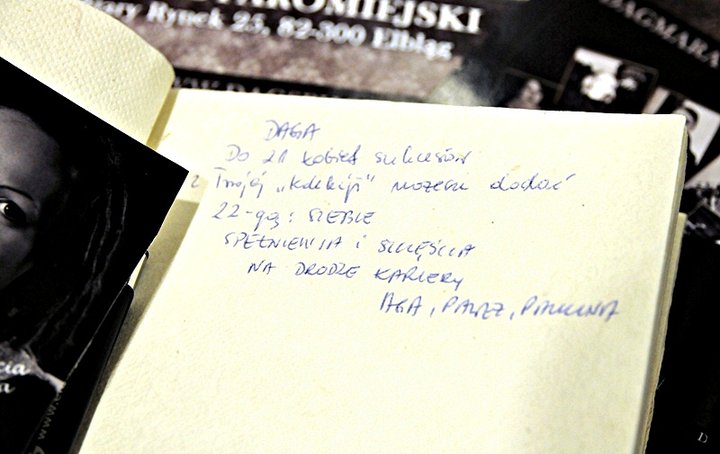 STAROMIEJSKI
Stary Rynek 25, 82-300 Elbląg
DAGMARA
DAGA
Do 21 kobiet sukcesów
z Twojej „kolekcji" możesz dodać
22-gą: SIEBIE
SPEŁNIENIA i SZCZĘŚCIA
NA DRODZE KARIERY
AGA, PAWEŁ, PAULINA